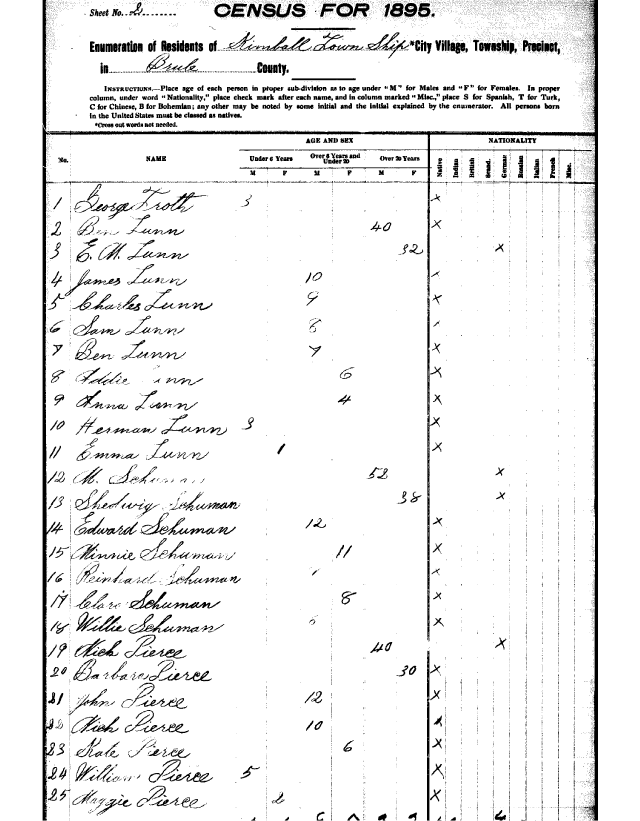 Sheet No. 2
CENSUS FOR 1895.
Enumeration of Residents of Kimball Town Ship *City Village, Township, Precinct,
in Brule County.
INSTRUCTIONS.—Place age of each person in proper sub-division as to age under "M" for Males and "F" for Females. In proper
column, under word "Nationality," place check mark after each name, and in column marked "Misc.," place S for Spanish, T for Turk,
C for Chinese, B for Bohemian; any other may be noted by some initial and the initial explained by the enumerator. All persons born
in the United States must be classed as natives.
*Cross out words not needed.
AGE AND SEX NATIONALITY
No. NAME Under 6 Years Over 6 Years and Under 20 Over 20 Years Native Indian British Scand. German Russian Italian French Misc.
M F M F M F
1 George Troth 3 x
2 Ben Lunn 40 x
3 E. M. Lunn 32 x
4 James Lunn 10
5 Charles Lunn 9 x
6 Sam Lunn 8
7 Ben Lunn 7 x
8 Addie 6 x
9 Anna Lunn 4 x
10 Herman Lunn 3 x
11 Emma Lunn 1 x
12 M. Schuman 52 x
13 Shedwig Schuman 38 x
14 Edward Schuman 12 x
15 Minnie Schuman 11 x
16 Reinhard Schuman x
17 Clara Schuman 8 x
18 Willie Schuman x
19 Nick Pierce 40 x
20 Barbara Pierce 30 x
21 John Pierce 12 x
22 Nick Pierce 10 x
23 Kate Pierce 6 x
24 William Pierce 5 x
25 Maggie Pierce 2 x